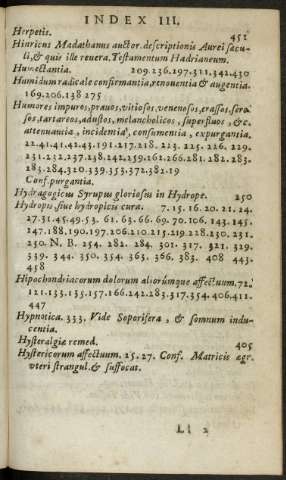 INDEX III.
Herpetis. 451
Hinricus Madathanus auctor descriptionis Aurei sacu-
li, & quis ille revera. Testamentum Hadrianeum.
Humectantia. 209.236.197.311.342.430
Humidum radicale confirmantia, renouentia & augentia.
169.206.138 275
Humores impuros, prauos, vitiosos, venenosos, crassos, sero
sos, tartareos, adustos, melancholicos, superfluos, &c.
attenuantia, incidentia, consumentia, expurgantia.
22.41.41.42.43.191.217.218. 223. 225. 226. 229.
231.232.237.238.242.259.262.266.281.282.283.
283.284.320.339.353.372.382.19
Conf. purgantia.
Hydragogicus Syrupus gloriosus in Hydrope. 250
Hydrops, siue hydropicis cura. 7. 15. 16. 20. 21. 24.
27.31.45.49.53. 61. 63. 66. 69. 70. 106. 143. 145.
147.188.190.197.206.210.215.219.228.230. 231.
250. N. B. 254. 282. 284. 301. 317. 321. 329.
339. 344. 350. 354. 363. 366. 383. 408 443.
458
Hipochondriacorum dolorum aliorúmque affectuum. 72.
121.133.135.157.166.242.283.317.354.406.411.
447
Hypnotica. 333. Vide Soporifera, & somnum indu-
centia.
Hysteralgiæ remed. 405
Hystericorum affectuum. 25. 27. Conf. Matricis ægr.
vteri strangul. & suffocat.
Ll 2